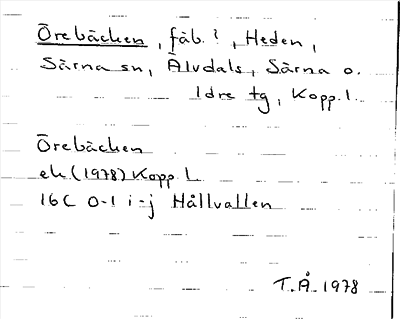 Örebäcken, fäb.?, Heden,
Särna sn, Älvdals, Särna o.
Idre tg, Kopp. l.
Örebäcken
ek. (1978) Kopp. L
16C 0-1 i-j Hållvallen
T.Å. 1978